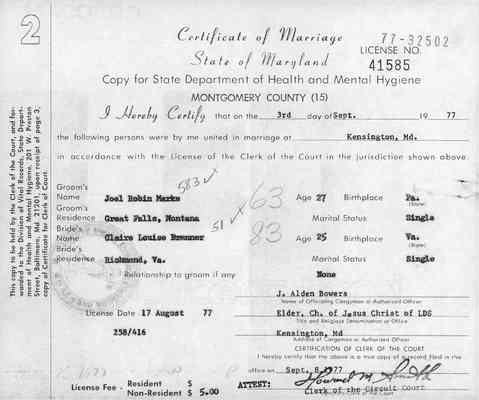 2
Certificate of Marriage
77-32502
State of Maryland
LICENSE NO.
41585
Copy for State Department of Health and Mental Hygiene
MONTGOMERY COUNTY (15)
I Hereby Certify that on the 3rd day of Sept. 19 77
the following persons were by me united in marriage at Kensington, Md.
in accordance with the License of the Clerk of the Court in the jurisdiction shown above
583 ✓
Groom's
Name Joel Robin Marks 63 Age 27 Birthplace Pa.
(State)
Groom's
Residence Great Falls, Montana Marital Status Single
51 ✓
Bride's
Name Claire Louise 83 Age 25 Birthplace Va.
(State)
Bride's
Residence Richmond, Va. Marital Status Single
Relationship to groom if any None
J. Alden Bowers
Name of Officiating Clergyman or Authorized Officer
License Date 17 August 77
Elder, Ch. of Jesus Christ of LDS
Title and Religious Denomination or Office
258/416
Kensington, Md
Address of Clergyman or Authorized Officer
CERTIFICATION OF CLERK OF THE COURT
I hereby certify that the above is a true copy of a record filed in this
office on Sept. 8, 1977
License Fee - Resident $
Non-Resident $ 5.00
ATTEST: Howard M. Smith
Clerk of the Circuit Court
This copy to be held by the Clerk of the Court, and for-
warded to the Division of Vital Records, State Depart-
ment of Health and Mental Hygiene, 201 W. Preston
Street, Baltimore, Md. 21201, upon receipt of page 3,
copy of Certificate for Clerk of Court.